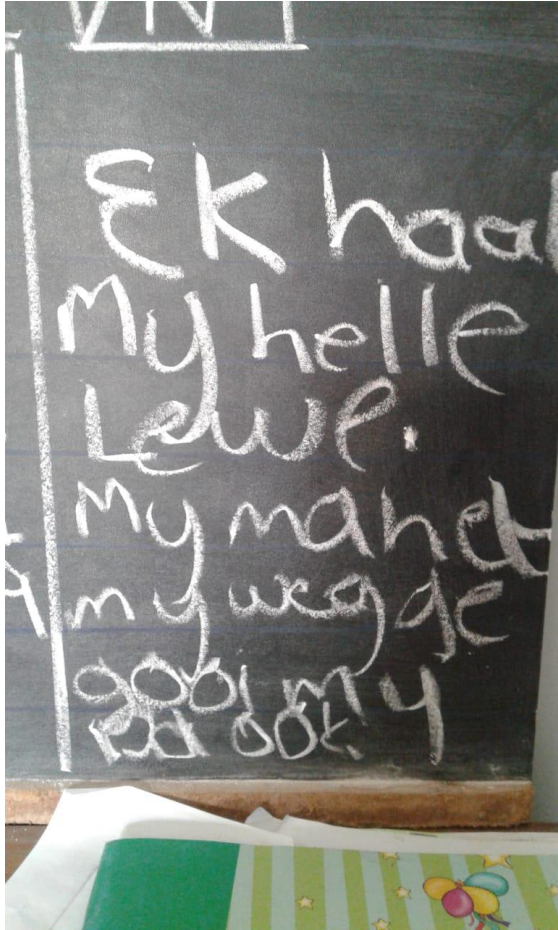 Ek haa
my helle
Lewe.
my ma het
my weg ge
gooi my
pa ook